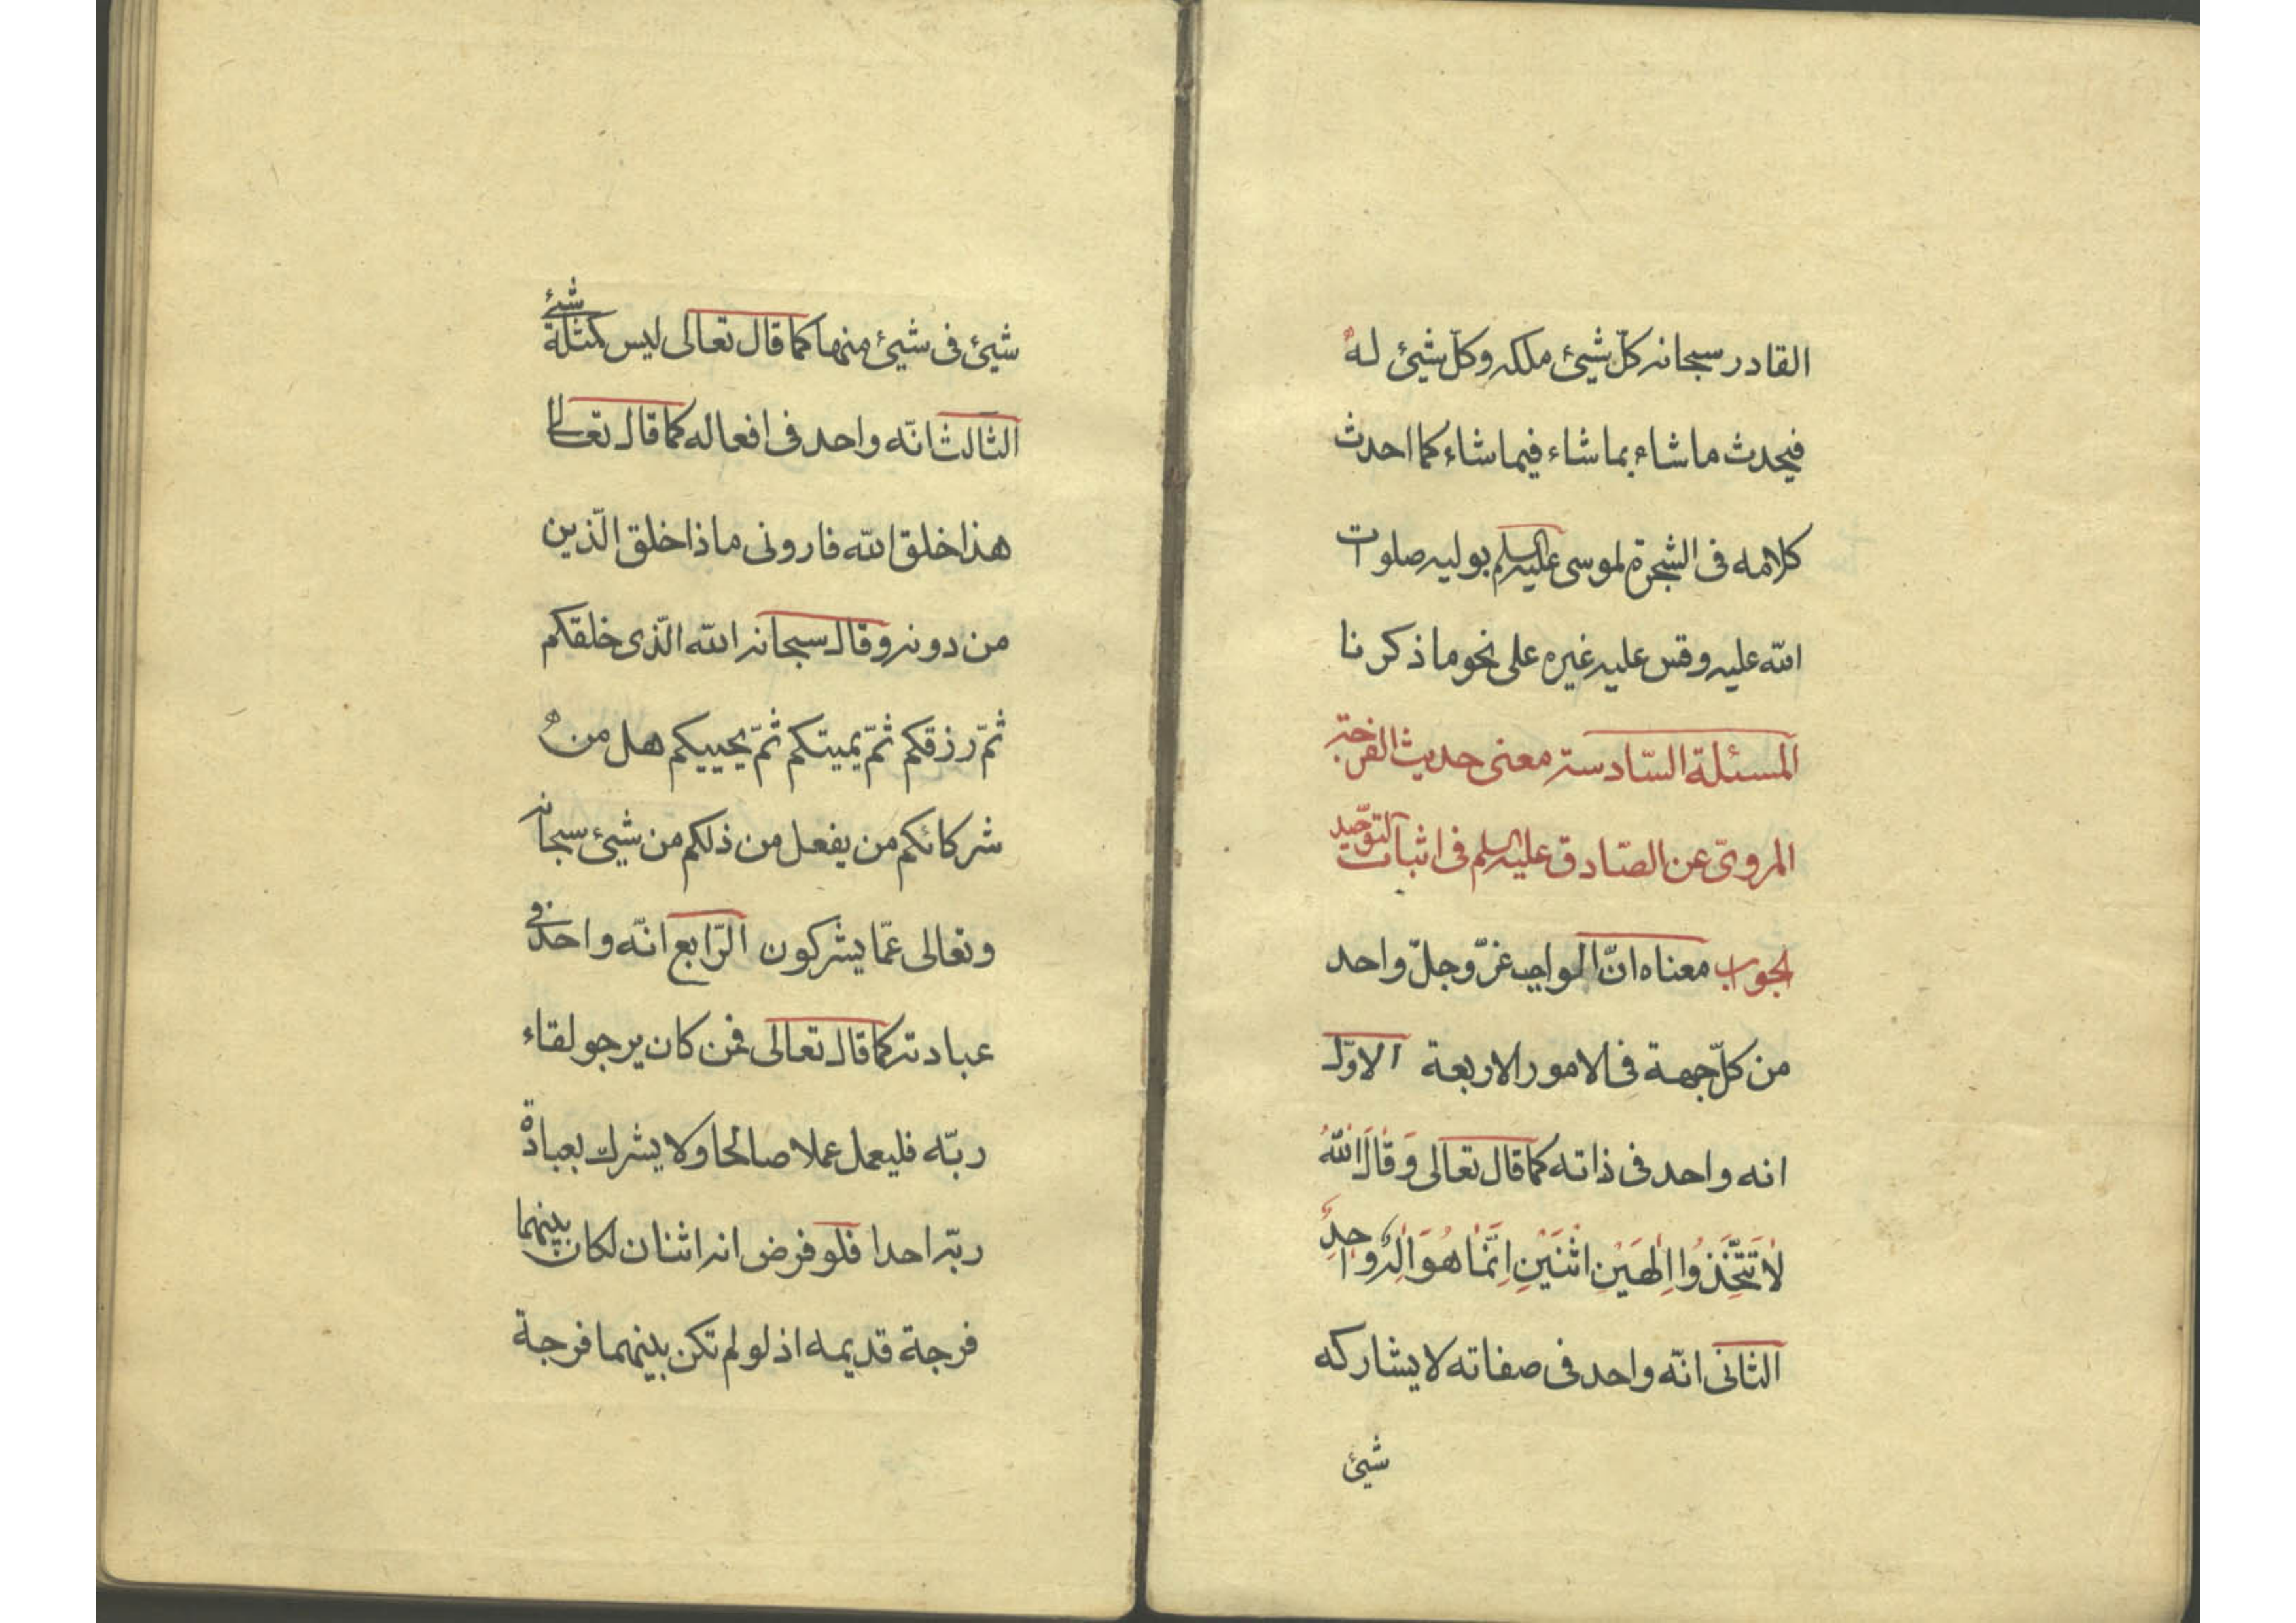 القادر سبحانه كلّ شيئ ملكه وكلّ شيئ له
فيحدث ما شاء بما شاء فيما شاء كما احدث
كلامه فى الشجرة لموسى عليه السلم بوليه صلوات
الله عليه وقس عليه غيره على نحو ما ذكرنا
المسئلة السّادسة معنى حديث الفرجة
المروىّ عن الصّادق عليه السلم فى اثبات التوحيد
الجواب معناه انّ الواجب عزّ وجلّ واحد
من كلّ جهة فى الامور الاربعة الاوّل
انه واحد فى ذاته كما قال تعالى وَقَالَ اللّٰهُ
لَا تَتَّخِذُوا اِلٰهَيْنِ اثْنَيْنِ اِنَّمَا هُوَ اِلٰهٌ وَاحِدٌ
الثانى انّه واحد فى صفاته لا يشاركه
شيئ
شيئ فى شيئ منها كما قال تعالى ليس كمثله شيئ
الثالث انّه واحد فى افعاله كما قال تعالى
هذا خلق الله فارونى ماذا خلق الّذين
من دونه وقال سبحانه الله الّذى خلقكم
ثمّ رزقكم ثمّ يميتكم ثمّ يحييكم هل من
شركائكم من يفعل من ذلكم من شيئ سبحانه
وتعالى عمّا يشركون الرّابع انّه واحد فى
عبادته كما قال تعالى فمن كان يرجو لقاء
ربّه فليعمل عملا صالحا ولا يشرك بعبادة
ربّه احدا فلو فرض انه اثنان لكان بينهما
فرجة قديمه اذ لو لم تكن بينهما فرجة